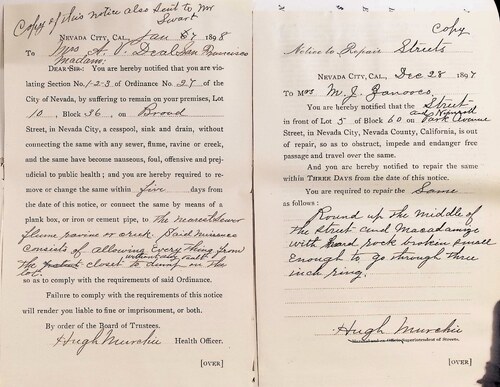 Copy of this notice also sent to Mr
Swart
NEVADA CITY, CAL., Jan 7 1898
To Mrs A. V. Deal San Francisco
Madam:
DEAR SIR: You are hereby notified that you are vi-
olating Section No. 1-2-3 of Ordinance No. 27 of the
City of Nevada, by suffering to remain on your premises, Lot
10, Block 36, on Broad
Street, in Nevada City, a cesspool, sink and drain, without
connecting the same with any sewer, flume, ravine or creek,
and the same have become nauseous, foul, offensive and prej-
udicial to public health; and you are hereby required to re-
move or change the same within five days from
the date of this notice, or connect the same by means of a
plank box, or iron or cement pipe, to the nearest sewer
flume ravine or creek. Said nuisance
consists of allowing Every thing from
without any vault
the closet to dump on the
lot.
so as to comply with the requirements of said Ordinance.
Failure to comply with the requirements of this notice
will render you liable to fine or imprisonment, or both.
By order of the Board of Trustees.
Hugh Murchie Health Officer.
[OVER]
Copy
Notice to Repair Streets
NEVADA CITY, CAL., Dec 28 1897
To Mrs M. J.
You are hereby notified that the Street
and
in front of Lot 5 of Block 60 on Park Avenue
Street, in Nevada City, Nevada County, California, is out
of repair, so as to obstruct, impede and endanger free
passage and travel over the same.
And you are hereby notified to repair the same
within THREE DAYS from the date of this notice.
You are required to repair the Same
as follows:
Round up the Middle of
the Street and Macadamize
with hard rock broken small
Enough to go through three
inch ring.
Hugh Murchie
Superintendent of Streets.
[OVER]